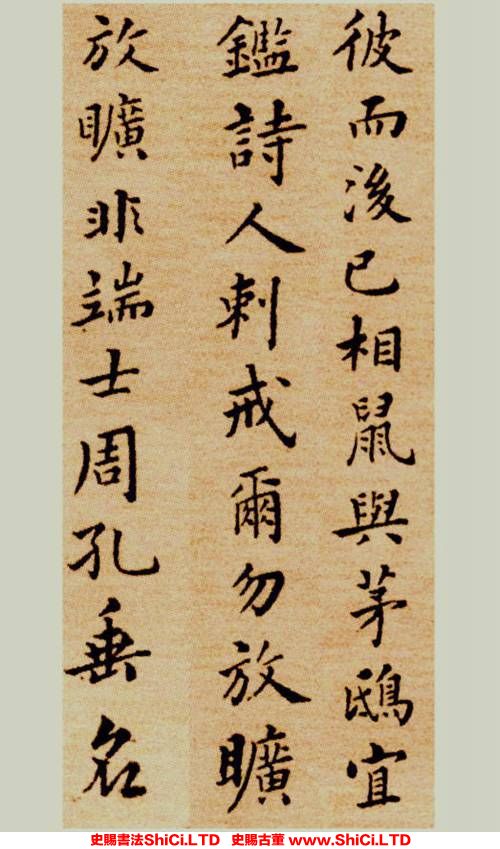 彼而後已相鼠與茅鴟宜
鑑詩人刺戒爾勿放曠
放曠非端士周孔垂名
史賜書法ShiCi.LTD 史賜古董 www.ShiCi.LTD